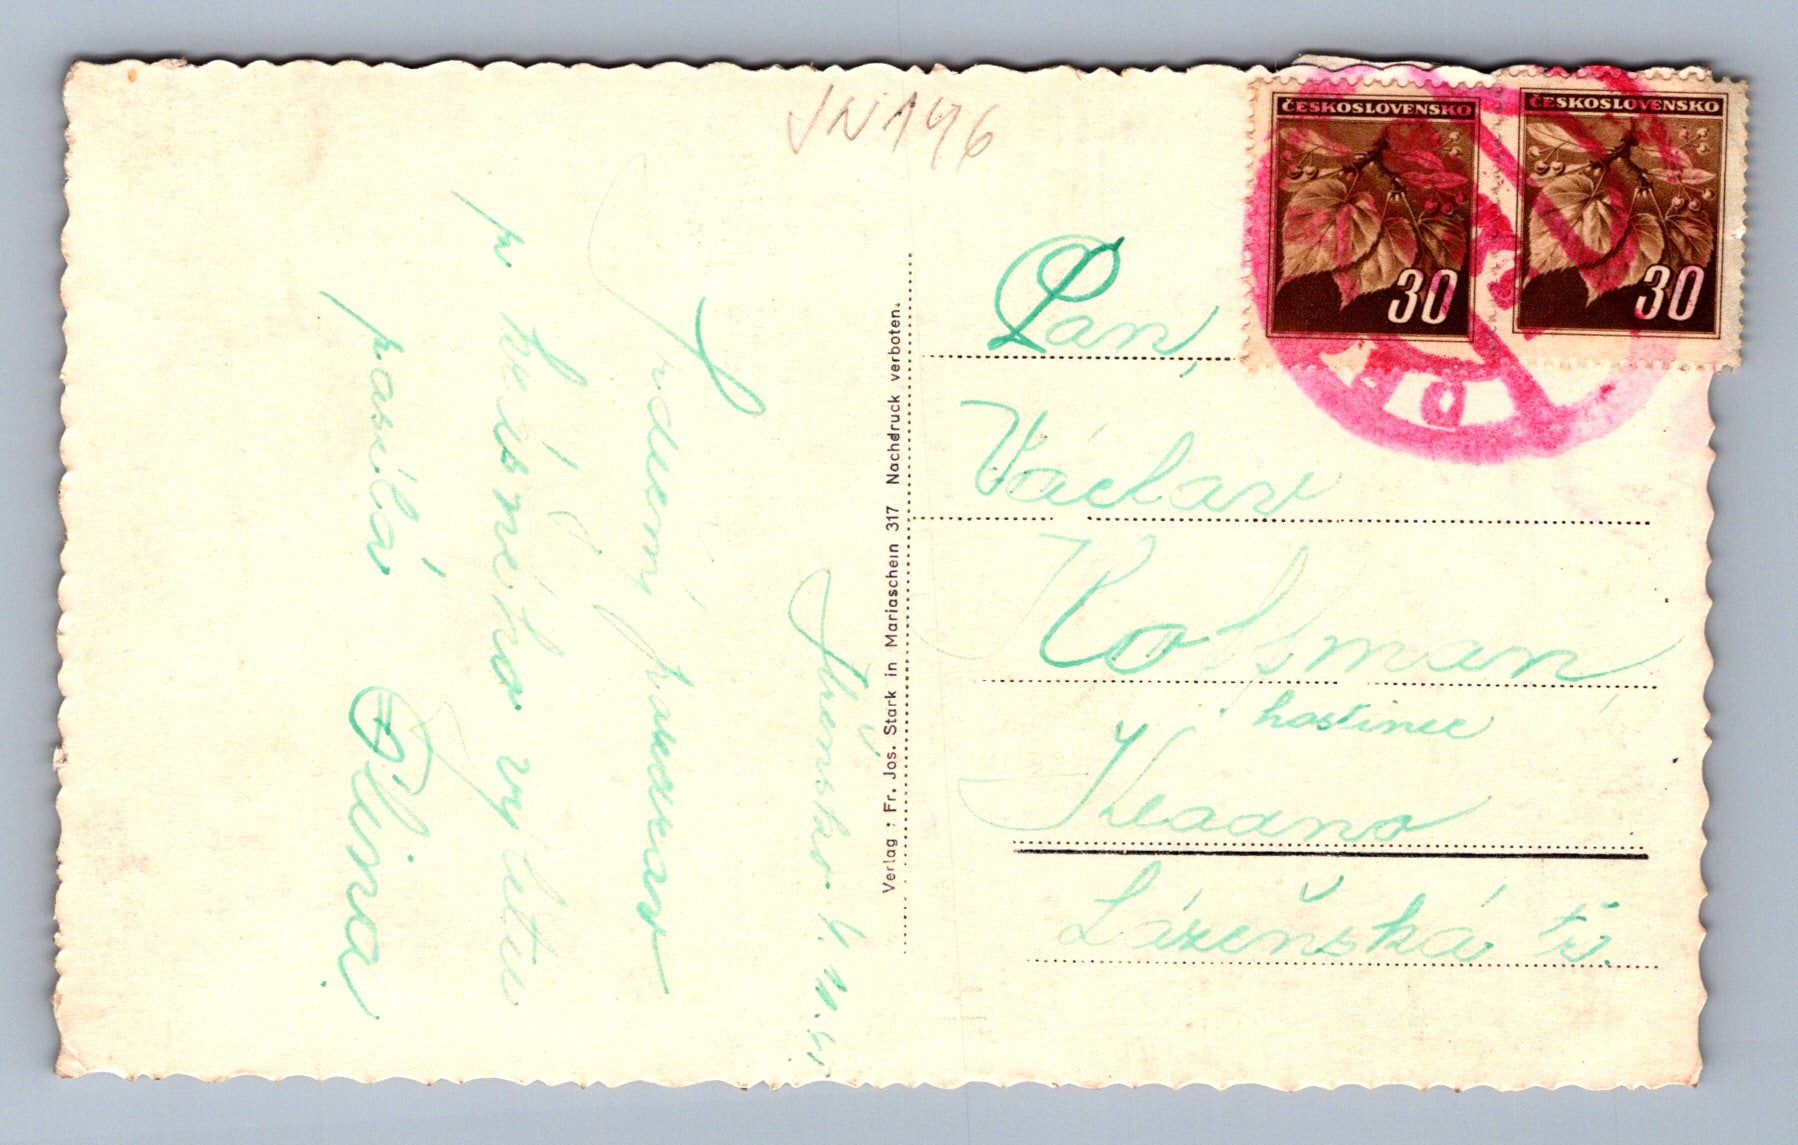 JN146
ČESKOSLOVENSKO
30
ČESKOSLOVENSKO
30
DĚ
Pan,
Václav
Kofman,
hostinec
Kladno
Lázeňská tř.
Verlag: Fr. Jos. Stark in Mariaschein 317 Nachdruck verboten.
Srdečný pozdrav
z krásného výletu
posílá Olina.